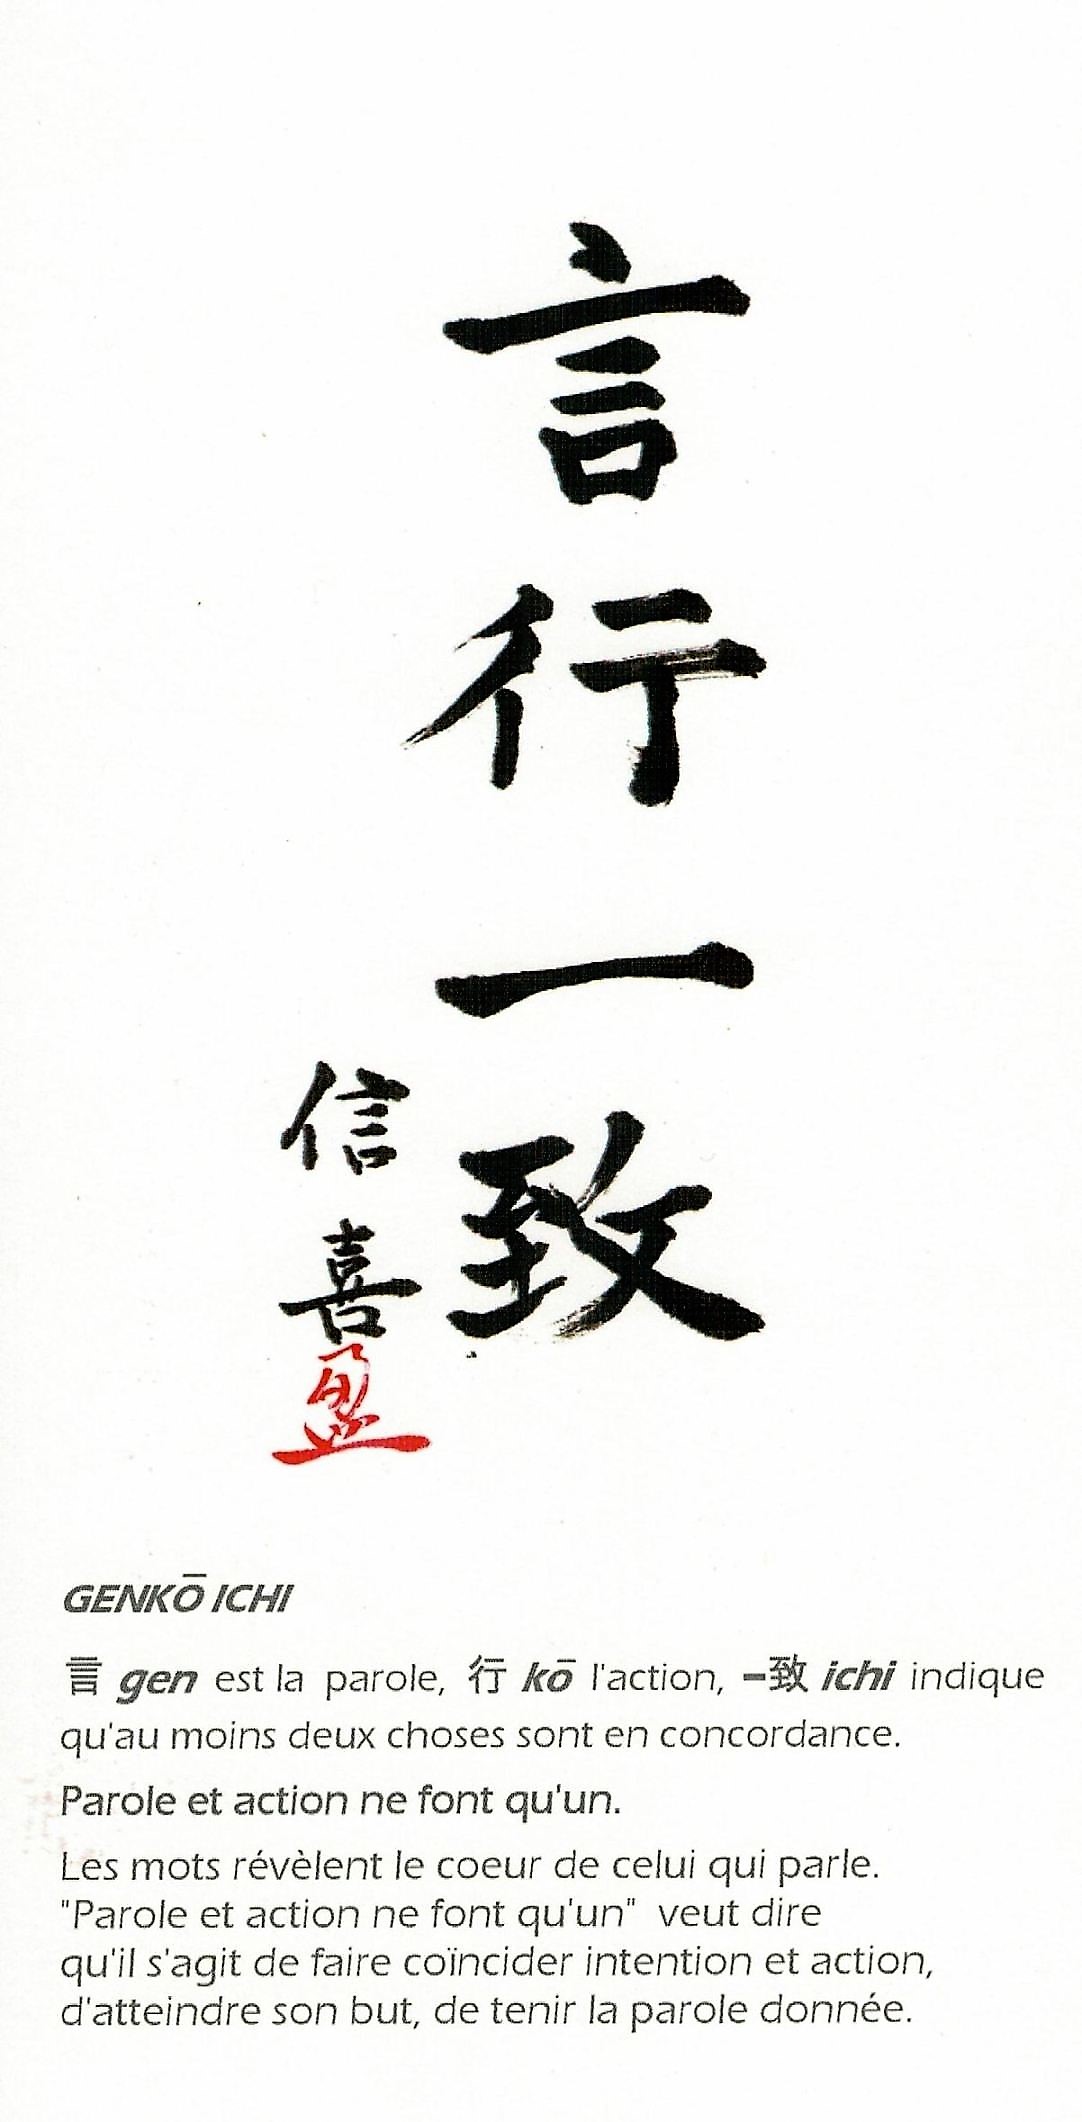 言行一致
信喜
GENKŌ ICHI
言 gen est la parole, 行 kō l'action, 一致 ichi indique
qu'au moins deux choses sont en concordance.
Parole et action ne font qu'un.
Les mots révèlent le coeur de celui qui parle.
"Parole et action ne font qu'un" veut dire
qu'il s'agit de faire coïncider intention et action,
d'atteindre son but, de tenir la parole donnée.